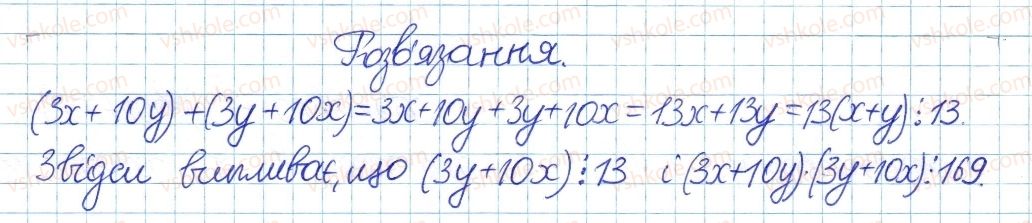 Розв'язання.
(3x+10y)+(3y+10x)=3x+10y+3y+10x=13x+13y=13(x+y)⋮13.
Звідси випливає, що (3y+10x)⋮13 і (3x+10y)·(3y+10x)⋮169.